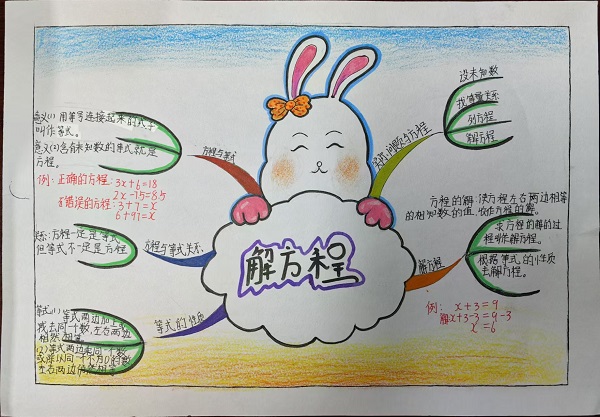 解方程
方程与等式
意义(1) 用等号连接起来的式子
叫作等式。
意义(2)含有未知数的等式就是
方程。
例: 正确的方程: 3x+6=18
错误的方程: 3+7=x
6+97=x
方程与等式关系
关系: 方程一定是等式
但等式不一定是方程
等式的性质
等式(1) 等式两边加上或
减去同一个数,左右两边
相然相等
(2) 等式两边乘同一个数
或除以同一个不为0的数
左右两边仍然相等
实际问题与方程
设未知数
找等量关系
列方程
解方程
解方程
方程的解: 使方程左右两边相等
的相知数的值, 叫作方程的解。
求方程的解的过
程叫作解方程。
根据等式的性质
去解方程。
例: x+3=9
解x+3-3=9-3
x=6